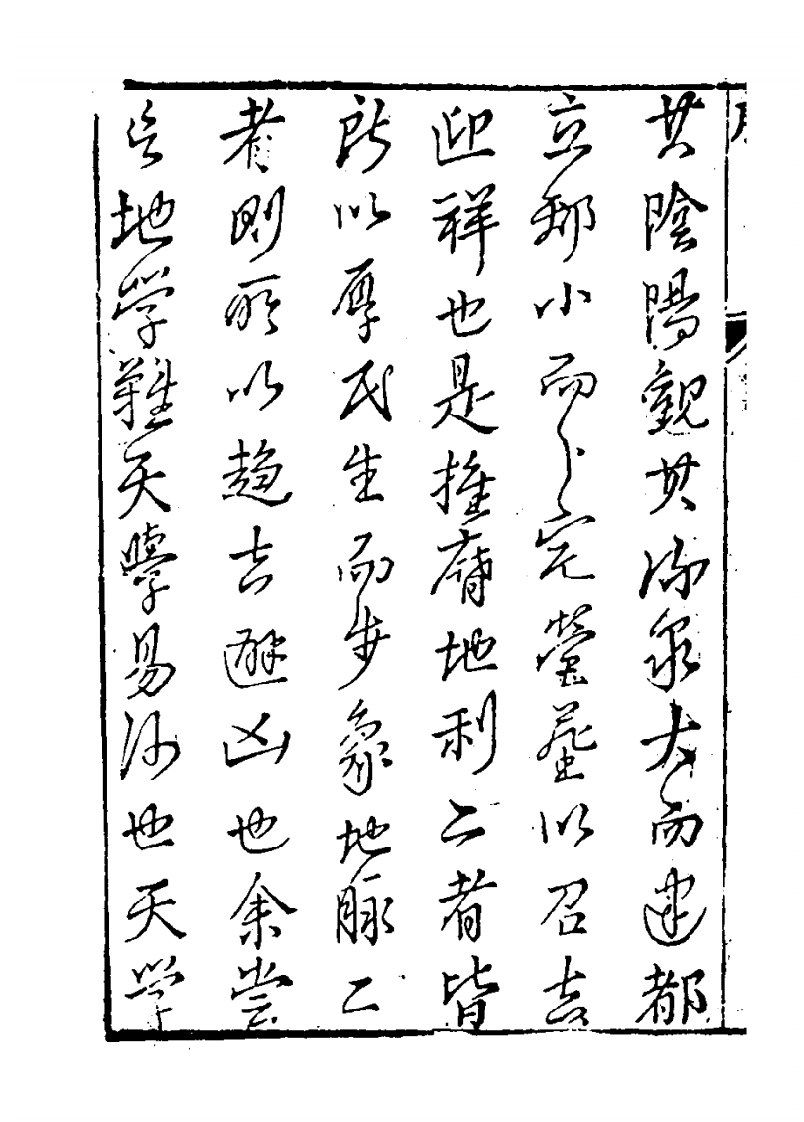 其陰陽觀其流泉大而建都
立郡小而卜宅塋墓以召吉
迎祥也是推地利二者皆
所以厚民生而步象地脉二
者則所以趨吉避凶也余嘗
言地学難天學易何也天学